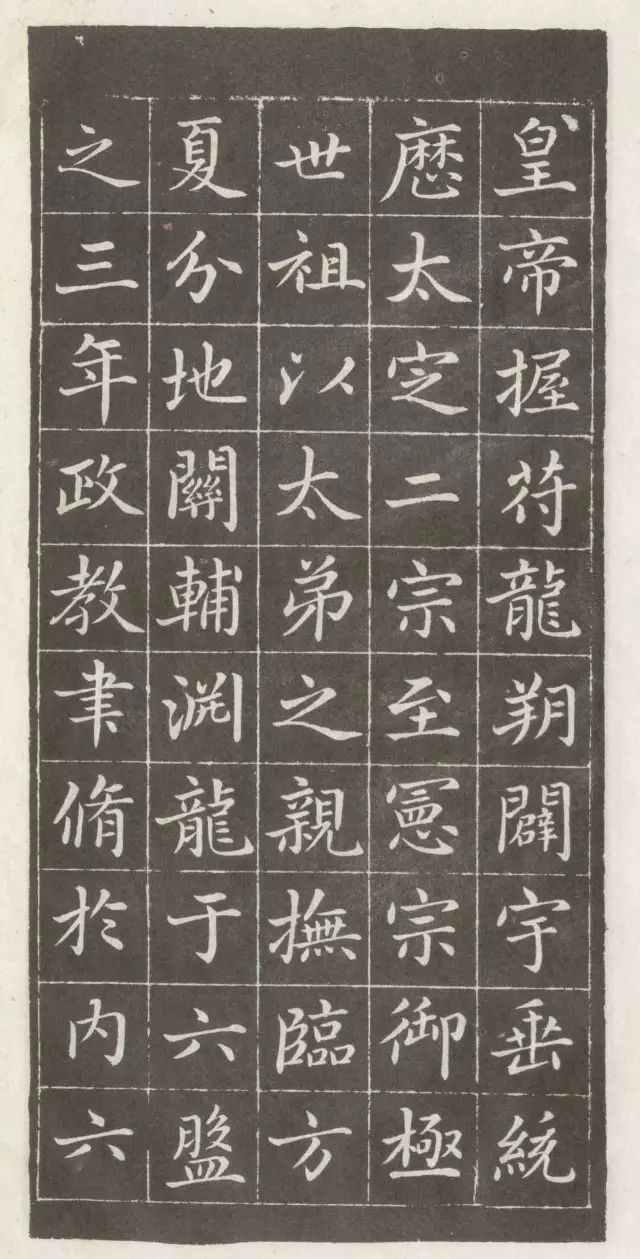 皇帝握苻龍朔闢宇垂統
厯太㝎二宗至憲宗御極
世祖以太弟之親撫臨方
夏分地關輔渕龍于六盤
之三年政教聿脩於内六